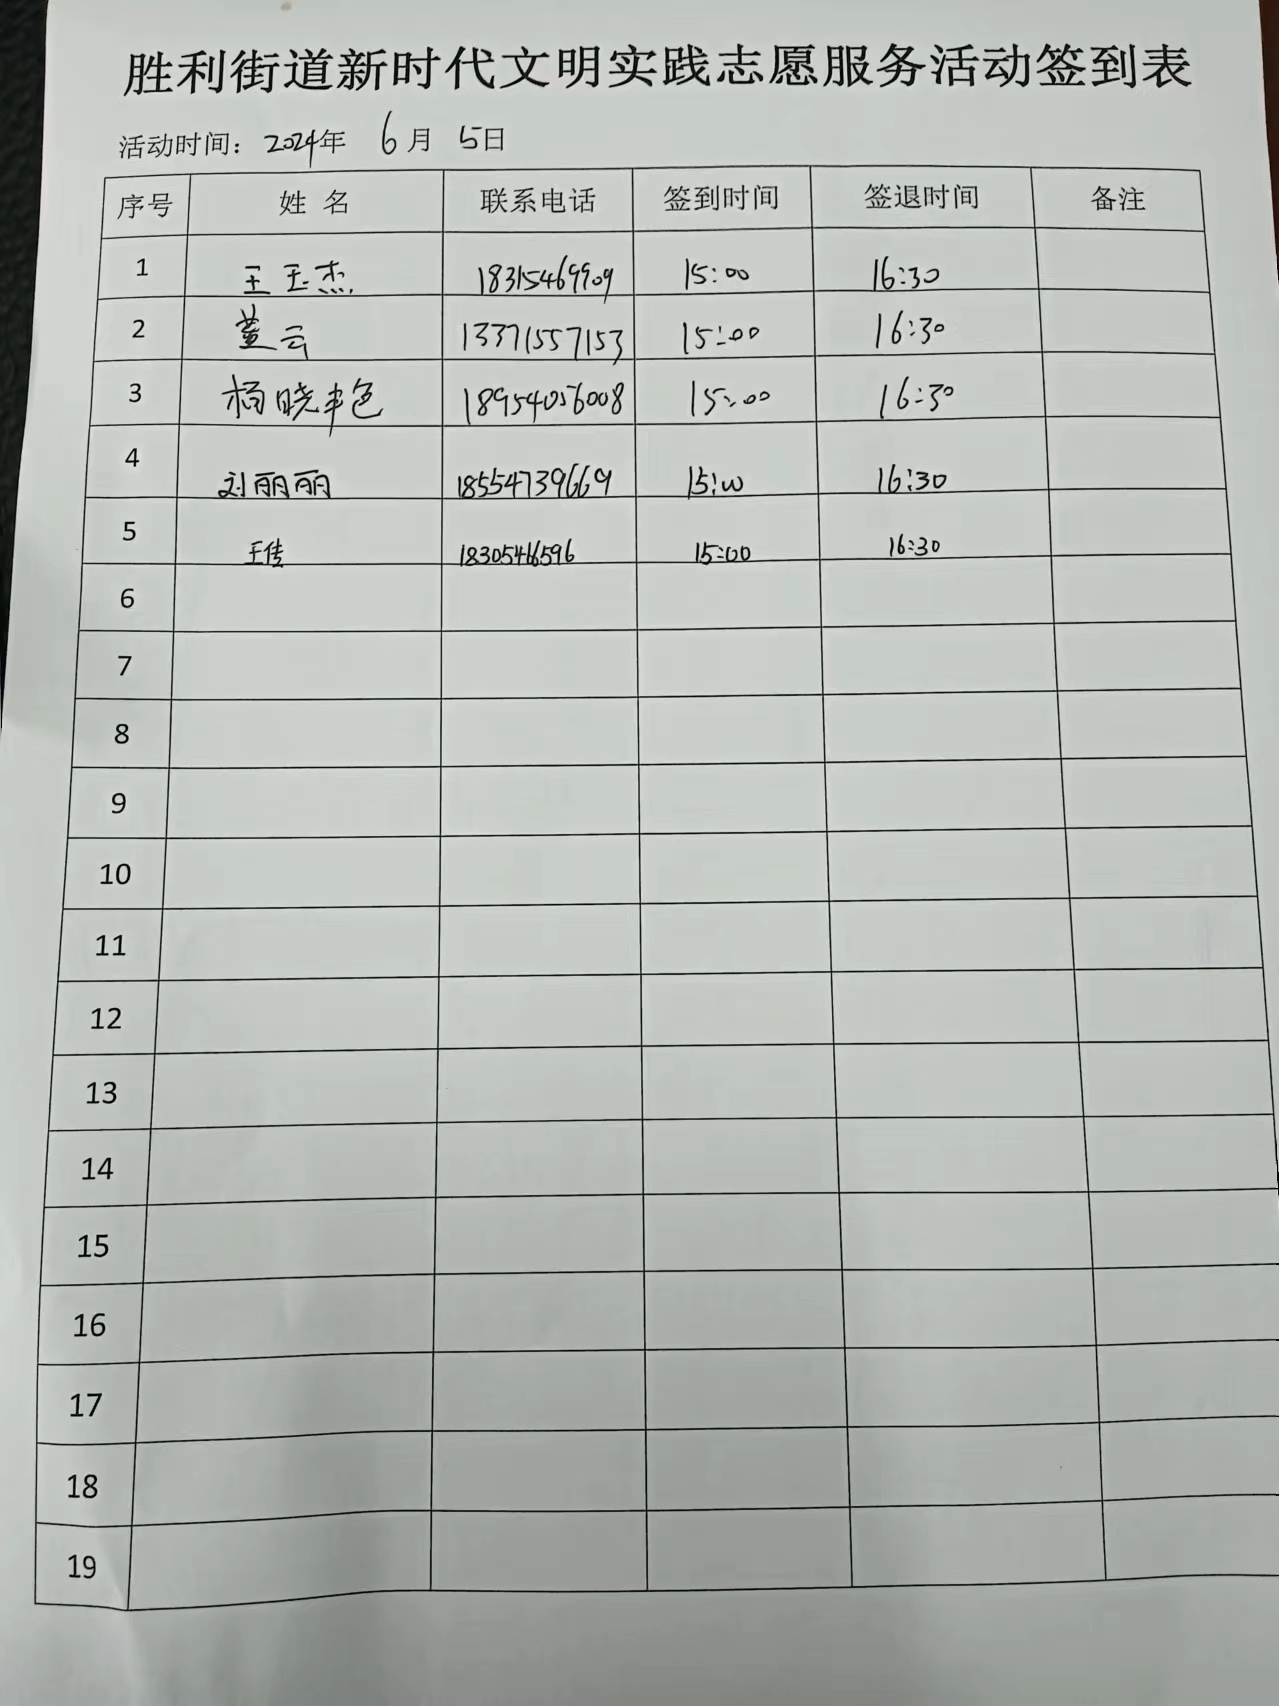 胜利街道新时代文明实践志愿服务活动签到表
活动时间：2024年 6月 5日
序号 姓 名 联系电话 签到时间 签退时间 备注
1 王玉杰 18315469909 15:00 16:30
2 董云 13371557153 15:00 16:30
3 杨晓艳 18954056008 15:00 16:30
4 刘丽丽 18554739669 15:00 16:30
5 王传 18305466596 15:00 16:30
6
7
8
9
10
11
12
13
14
15
16
17
18
19